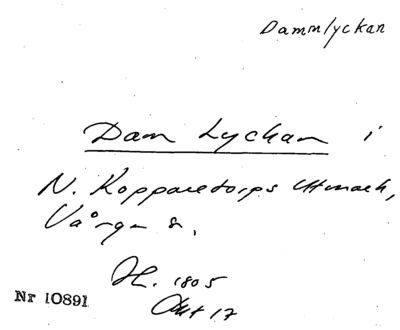 Dammlyckan
Dam Lyckan i
N. Kopparetorps Utmark,
Vånga s.
H. 1805
Akt 17
Nr 10891